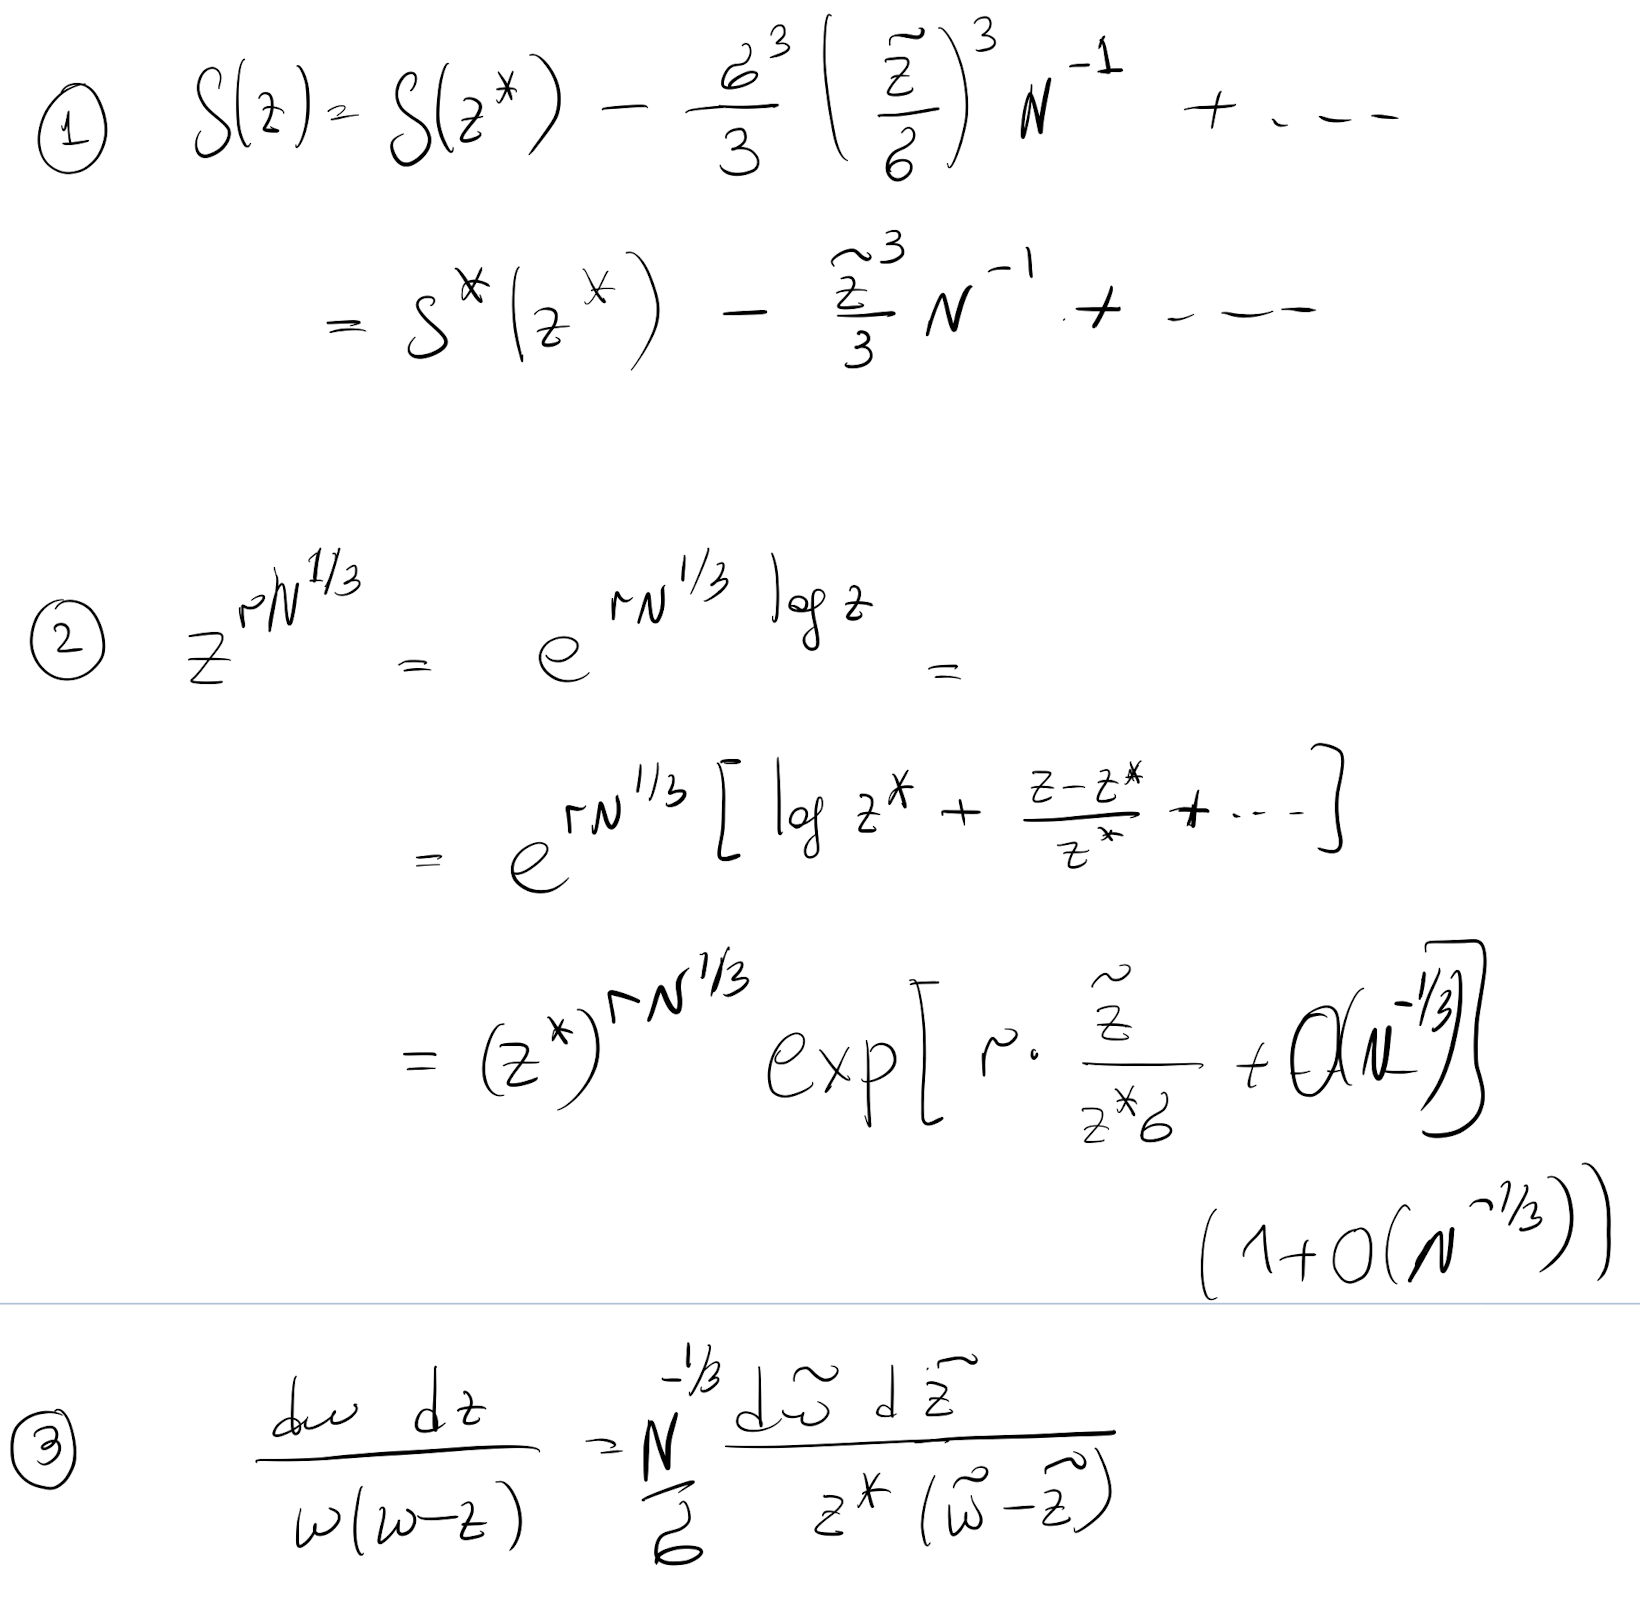 ① S(z) = S(z*) - σ³/3 (z̃/σ)³ N⁻¹ + ...
= S*(z*) - z̃³/3 N⁻¹ + ...
② z^{rN^{1/3}} = e^{rN^{1/3} log z} =
= e^{rN^{1/3}} [log z* + (z-z*)/z* + ...]
= (z*)^{rN^{1/3}} exp[r · z̃/(z*σ) + O(N^{-1/3})]
(1+O(N^{-1/3}))
③ dw dz / w(w-z) = N^{-1/3}/σ dw̃ dz̃ / z*(w̃-z̃)